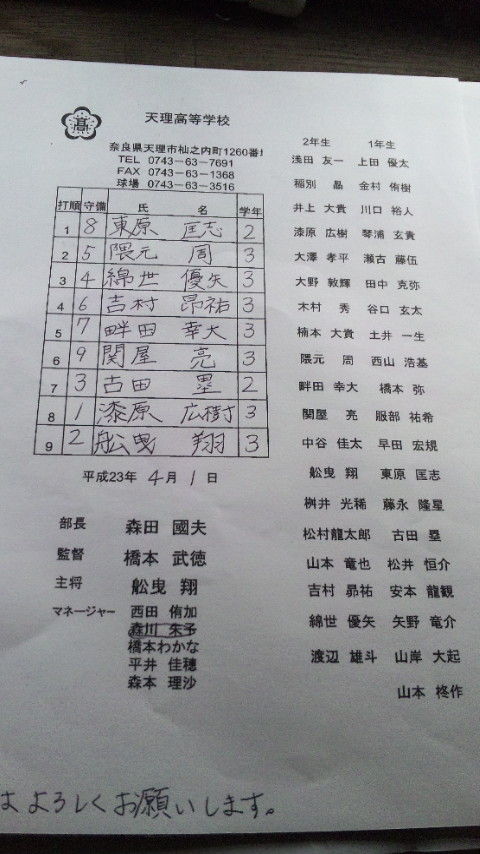 高
天理高等学校
奈良県天理市杣之内町1260番地
TEL 0743-63-7691
FAX 0743-63-1368
球場 0743-63-3516
打順 守備 氏 名 学年
1 8 東原 匡志 2
2 5 隈元 周 3
3 4 綿世 優矢 3
4 6 吉村 昂祐 3
5 7 畔田 幸大 3
6 9 関屋 亮 3
7 3 古田 塁 2
8 1 漆原 広樹 3
9 2 舩曳 翔 3
平成23年 4月 1日
部長 森田 國夫
監督 橋本 武徳
主将 舩曳 翔
マネージャー 西田 侑加
森川 朱子
橋本わかな
平井 佳穂
森本 理沙
2年生 1年生
浅田 友一 上田 優太
稲別 晶 金村 侑樹
井上 大貴 川口 裕人
漆原 広樹 琴浦 玄貴
大澤 孝平 瀬古 藤伍
大野 敦輝 田中 克弥
木村 秀 谷口 玄太
楠本 大貴 土井 一生
隈元 周 西山 浩基
畔田 幸大 橋本 弥
関屋 亮 服部 祐希
中谷 佳太 早田 宏規
舩曳 翔 東原 匡志
桝井 光稀 藤永 隆星
松村龍太郎 古田 塁
山本 竜也 松井 恒介
吉村 昴祐 安本 龍観
綿世 優矢 矢野 竜介
渡辺 雄斗 山岸 大起
山本 柊作
はよろしくお願いします。